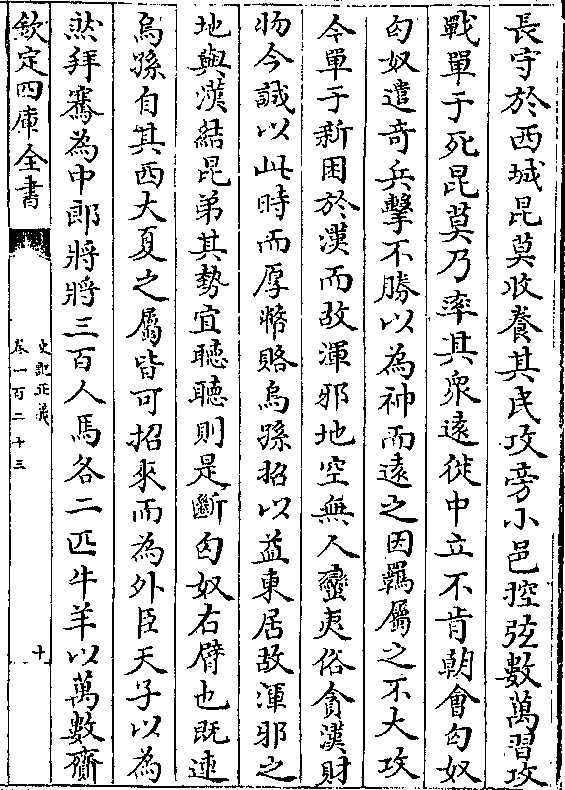 長守於西城昆莫收養其民攻旁小邑控弦數萬習攻
戰單于死昆莫乃率其衆遠徙中立不肯朝會匈奴
匈奴遣奇兵擊不勝以為神而遠之因羈屬之不大攻
今單于新困於漢而故渾邪地空無人蠻夷俗貪漢財
物今誠以此時而厚幣賂烏孫招以益東居故渾邪之
地與漢結昆弟其勢宜聽聽則是斷匈奴右臂也既連
烏孫自其西大夏之屬皆可招來而為外臣天子以為
然拜騫為中郎將將三百人馬各二匹牛羊以萬數齎
欽定四庫全書
史記正義
卷一百二十三
十